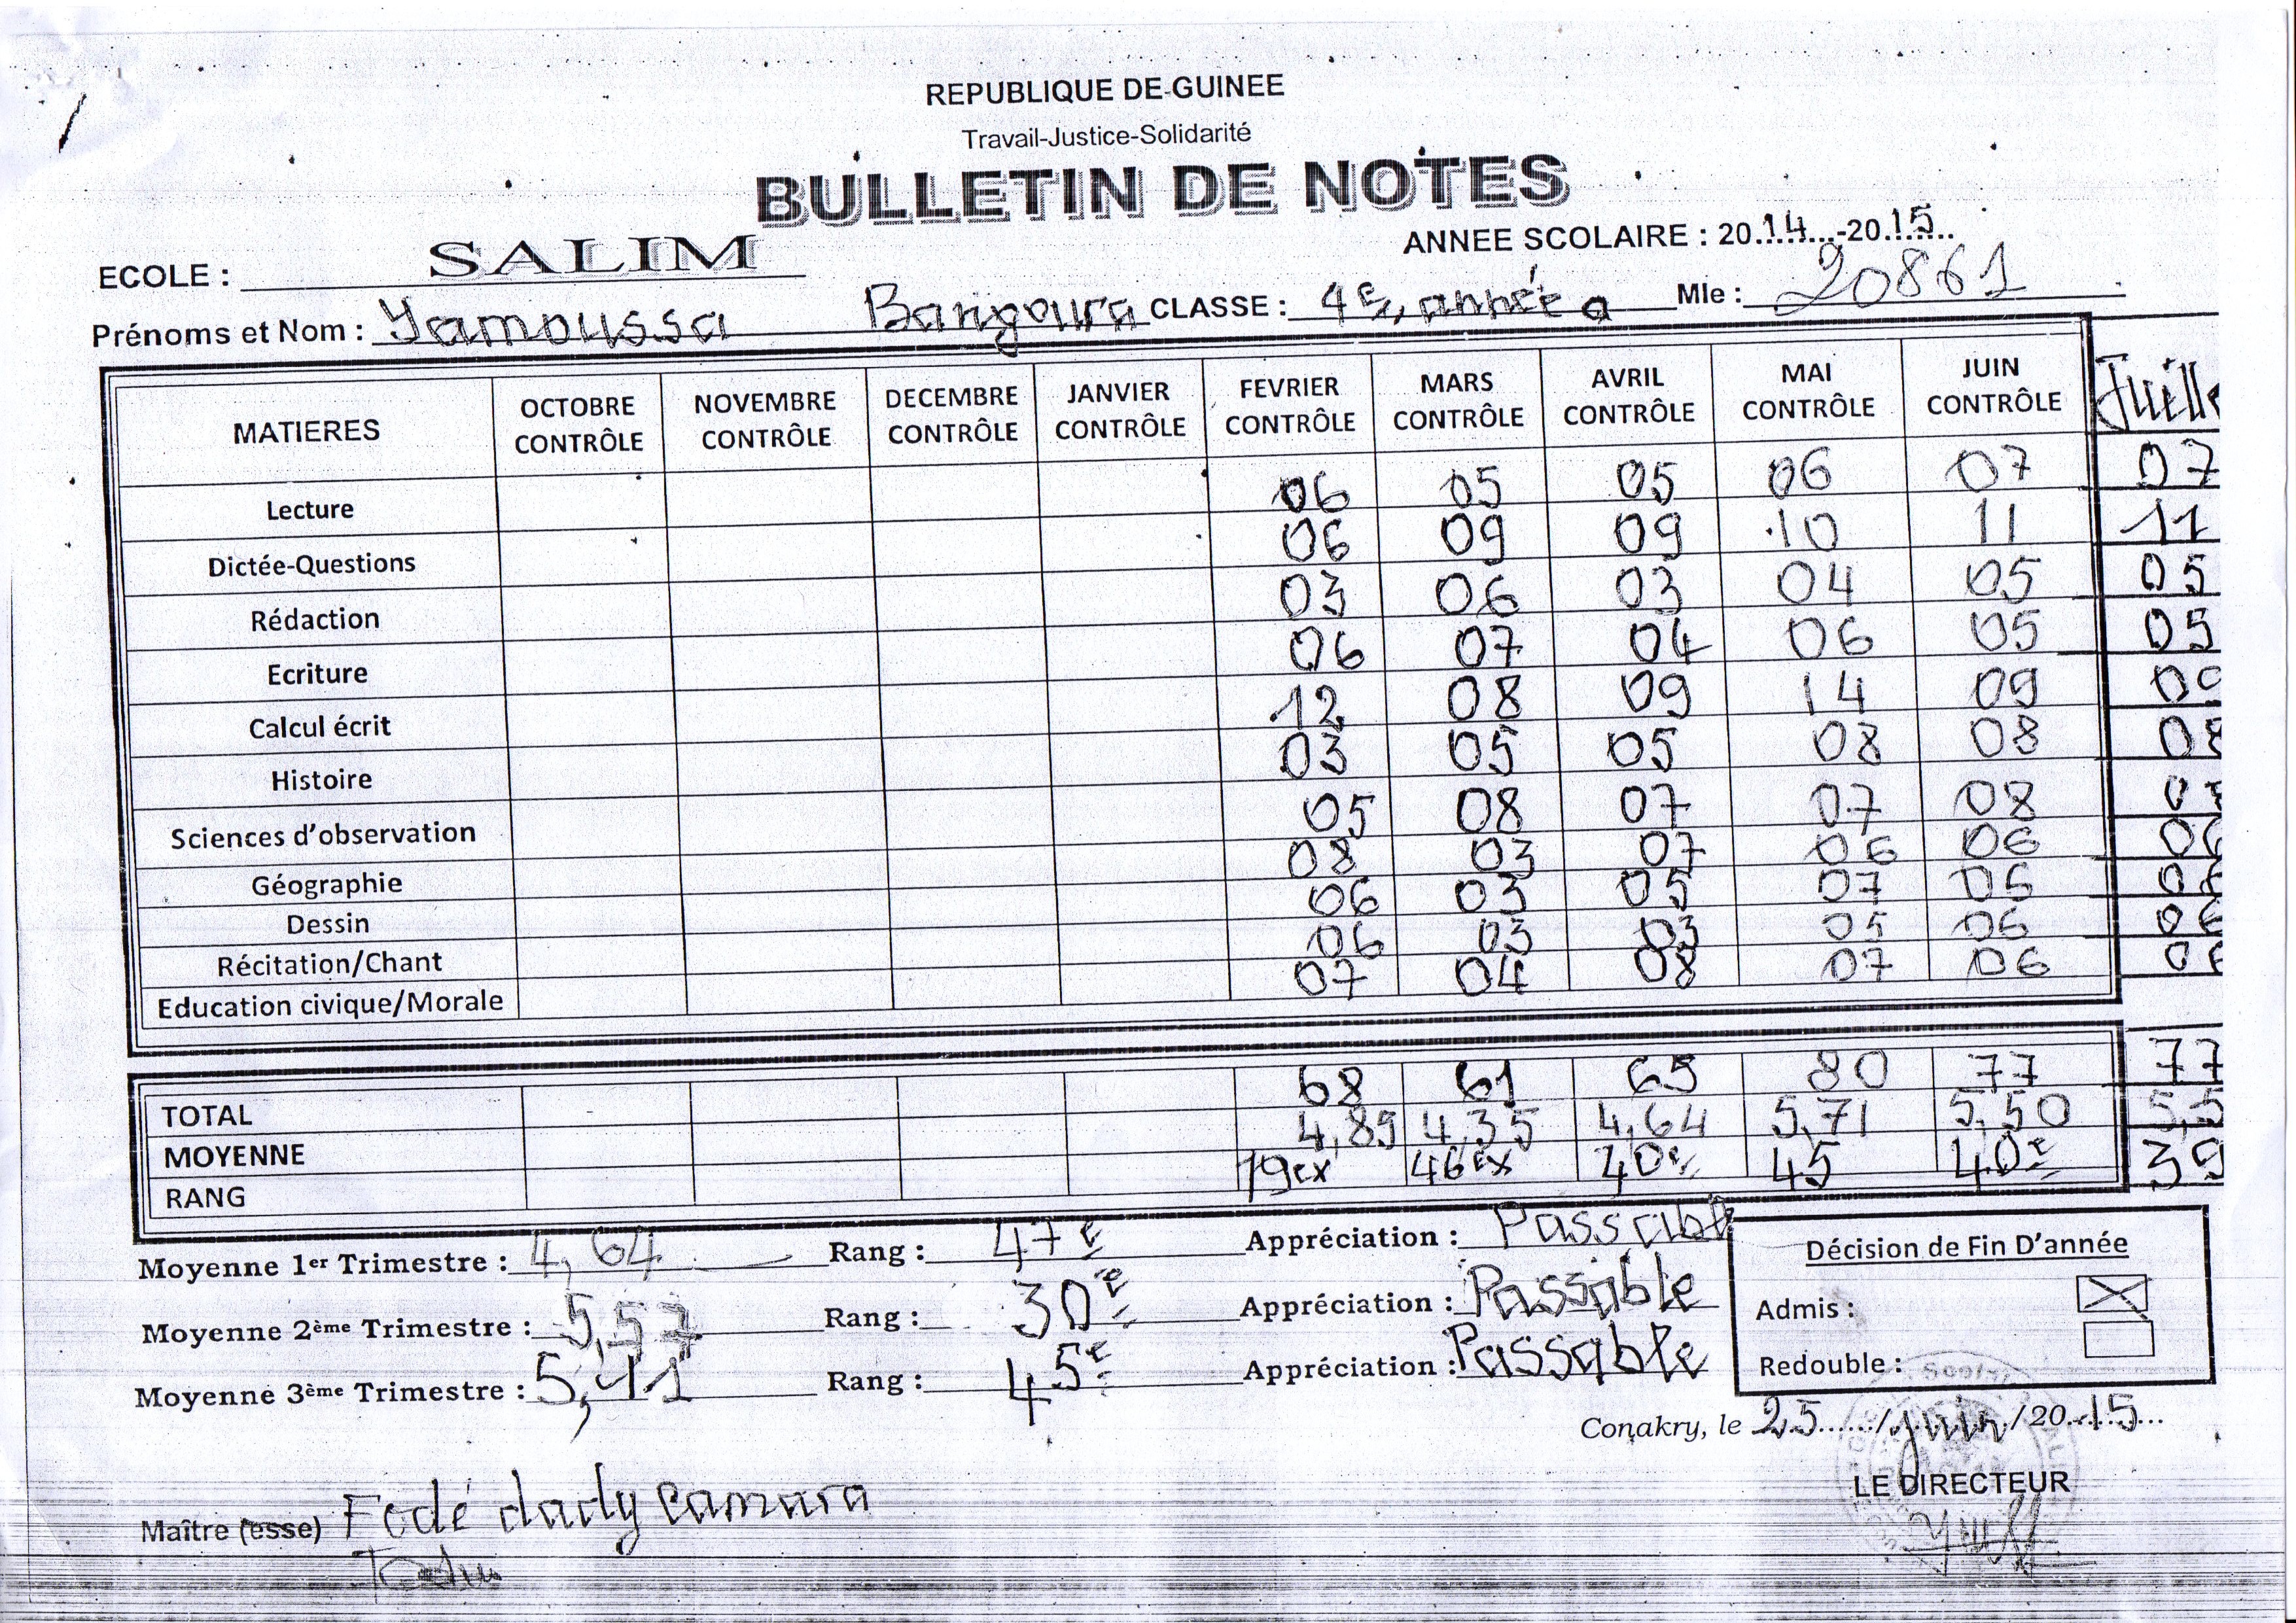 REPUBLIQUE DE GUINEE
Travail-Justice-Solidarité
BULLETIN DE NOTES
ANNEE SCOLAIRE : 20.14...-20.15...
ECOLE : SALIM
Prénoms et Nom : Yamoussa Bangoura CLASSE : 4e, année a Mle : 20861
MATIERES OCTOBRE CONTRÔLE NOVEMBRE CONTRÔLE DECEMBRE CONTRÔLE JANVIER CONTRÔLE FEVRIER CONTRÔLE MARS CONTRÔLE AVRIL CONTRÔLE MAI CONTRÔLE JUIN CONTRÔLE Juille
Lecture 06 05 05 06 07 07
Dictée-Questions 06 09 09 10 11 11
Rédaction 03 06 03 04 05 05
Ecriture 06 07 04 06 05 05
Calcul écrit 12 08 09 14 09 09
Histoire 03 05 05 08 08 08
Sciences d'observation 05 08 07 07 08
Géographie 08 03 07 06 06 06
Dessin 06 03 05 07 06 06
Récitation/Chant 06 03 03 05 06 06
Education civique/Morale 07 04 08 07 06 06
TOTAL 68 61 65 80 77 77
MOYENNE 4,85 4,35 4,64 5,71 5,50 5,5
RANG 79ex 46ex 40e 45 40e 39
Moyenne 1er Trimestre : 4,64 Rang : 47e Appréciation : Passable
Moyenne 2ème Trimestre : 5,57 Rang : 30e Appréciation : Passable
Moyenne 3ème Trimestre : 5,41 Rang : 45e Appréciation : Passable
Décision de Fin D'année
Admis :
Redouble :
Conakry, le 25....../juin/20..15...
LE DIRECTEUR
Maître (esse) Fodé dady Camara